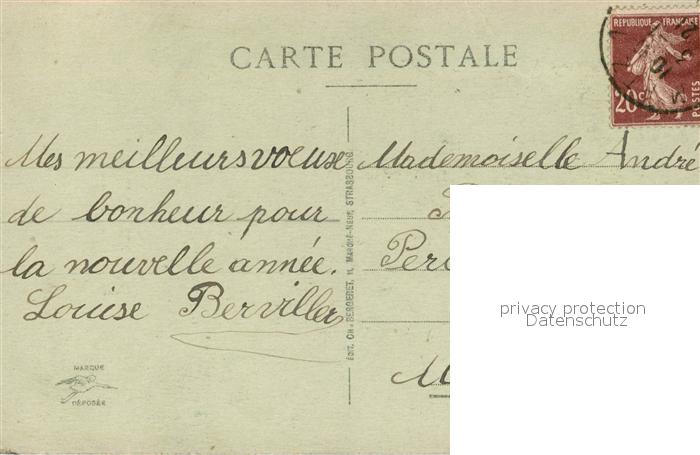 CARTE POSTALE
REPUBLIQUE FRANÇAISE
20c
POSTES
Mes meilleurs voeux
de bonheur pour
la nouvelle année.
Louise Berviller
Mademoiselle André
ÉDIT. CH. BERGERET, 11, MARCHÉ-NEUF, STRASBOURG
MARQUE
DÉPOSÉE
privacy protection
Datenschutz